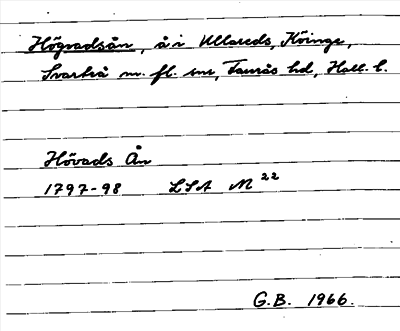 Högvadsån, å i Ullareds, Köinge,
Svartrå m. fl. snr, Faurås hd, Hall. l.
Hövads Ån
1797-98 LSA M 22
G.B. 1966.